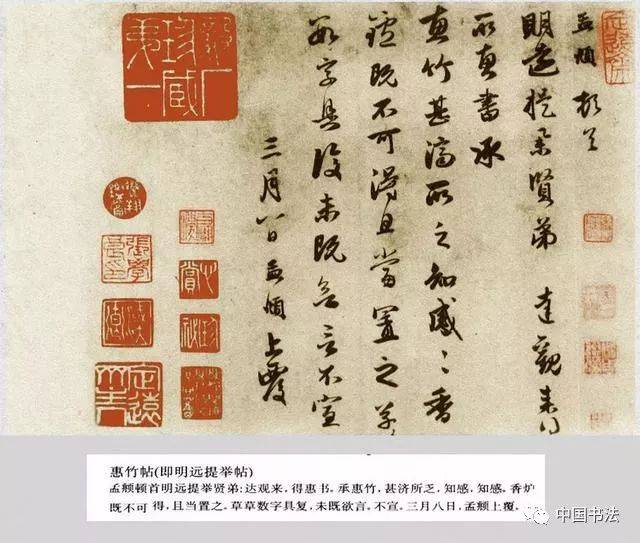 孟頫頓首
明遠提舉賢弟 達觀来得
所惠書承
惠竹甚濟所乏知感〻香
鑪既不可得且當置之草〻
數字具復未既欲言不宣
三月八日孟頫上覆
張學良印
定遠齋
惠竹帖(即明远提举帖)
孟頫顿首明远提举贤弟：达观来，得惠书。承惠竹，甚济所乏，知感，知感。香炉
既不可得，且当置之。草草数字具复，未既欲言，不宣。三月八日，孟頫上覆。
中国书法